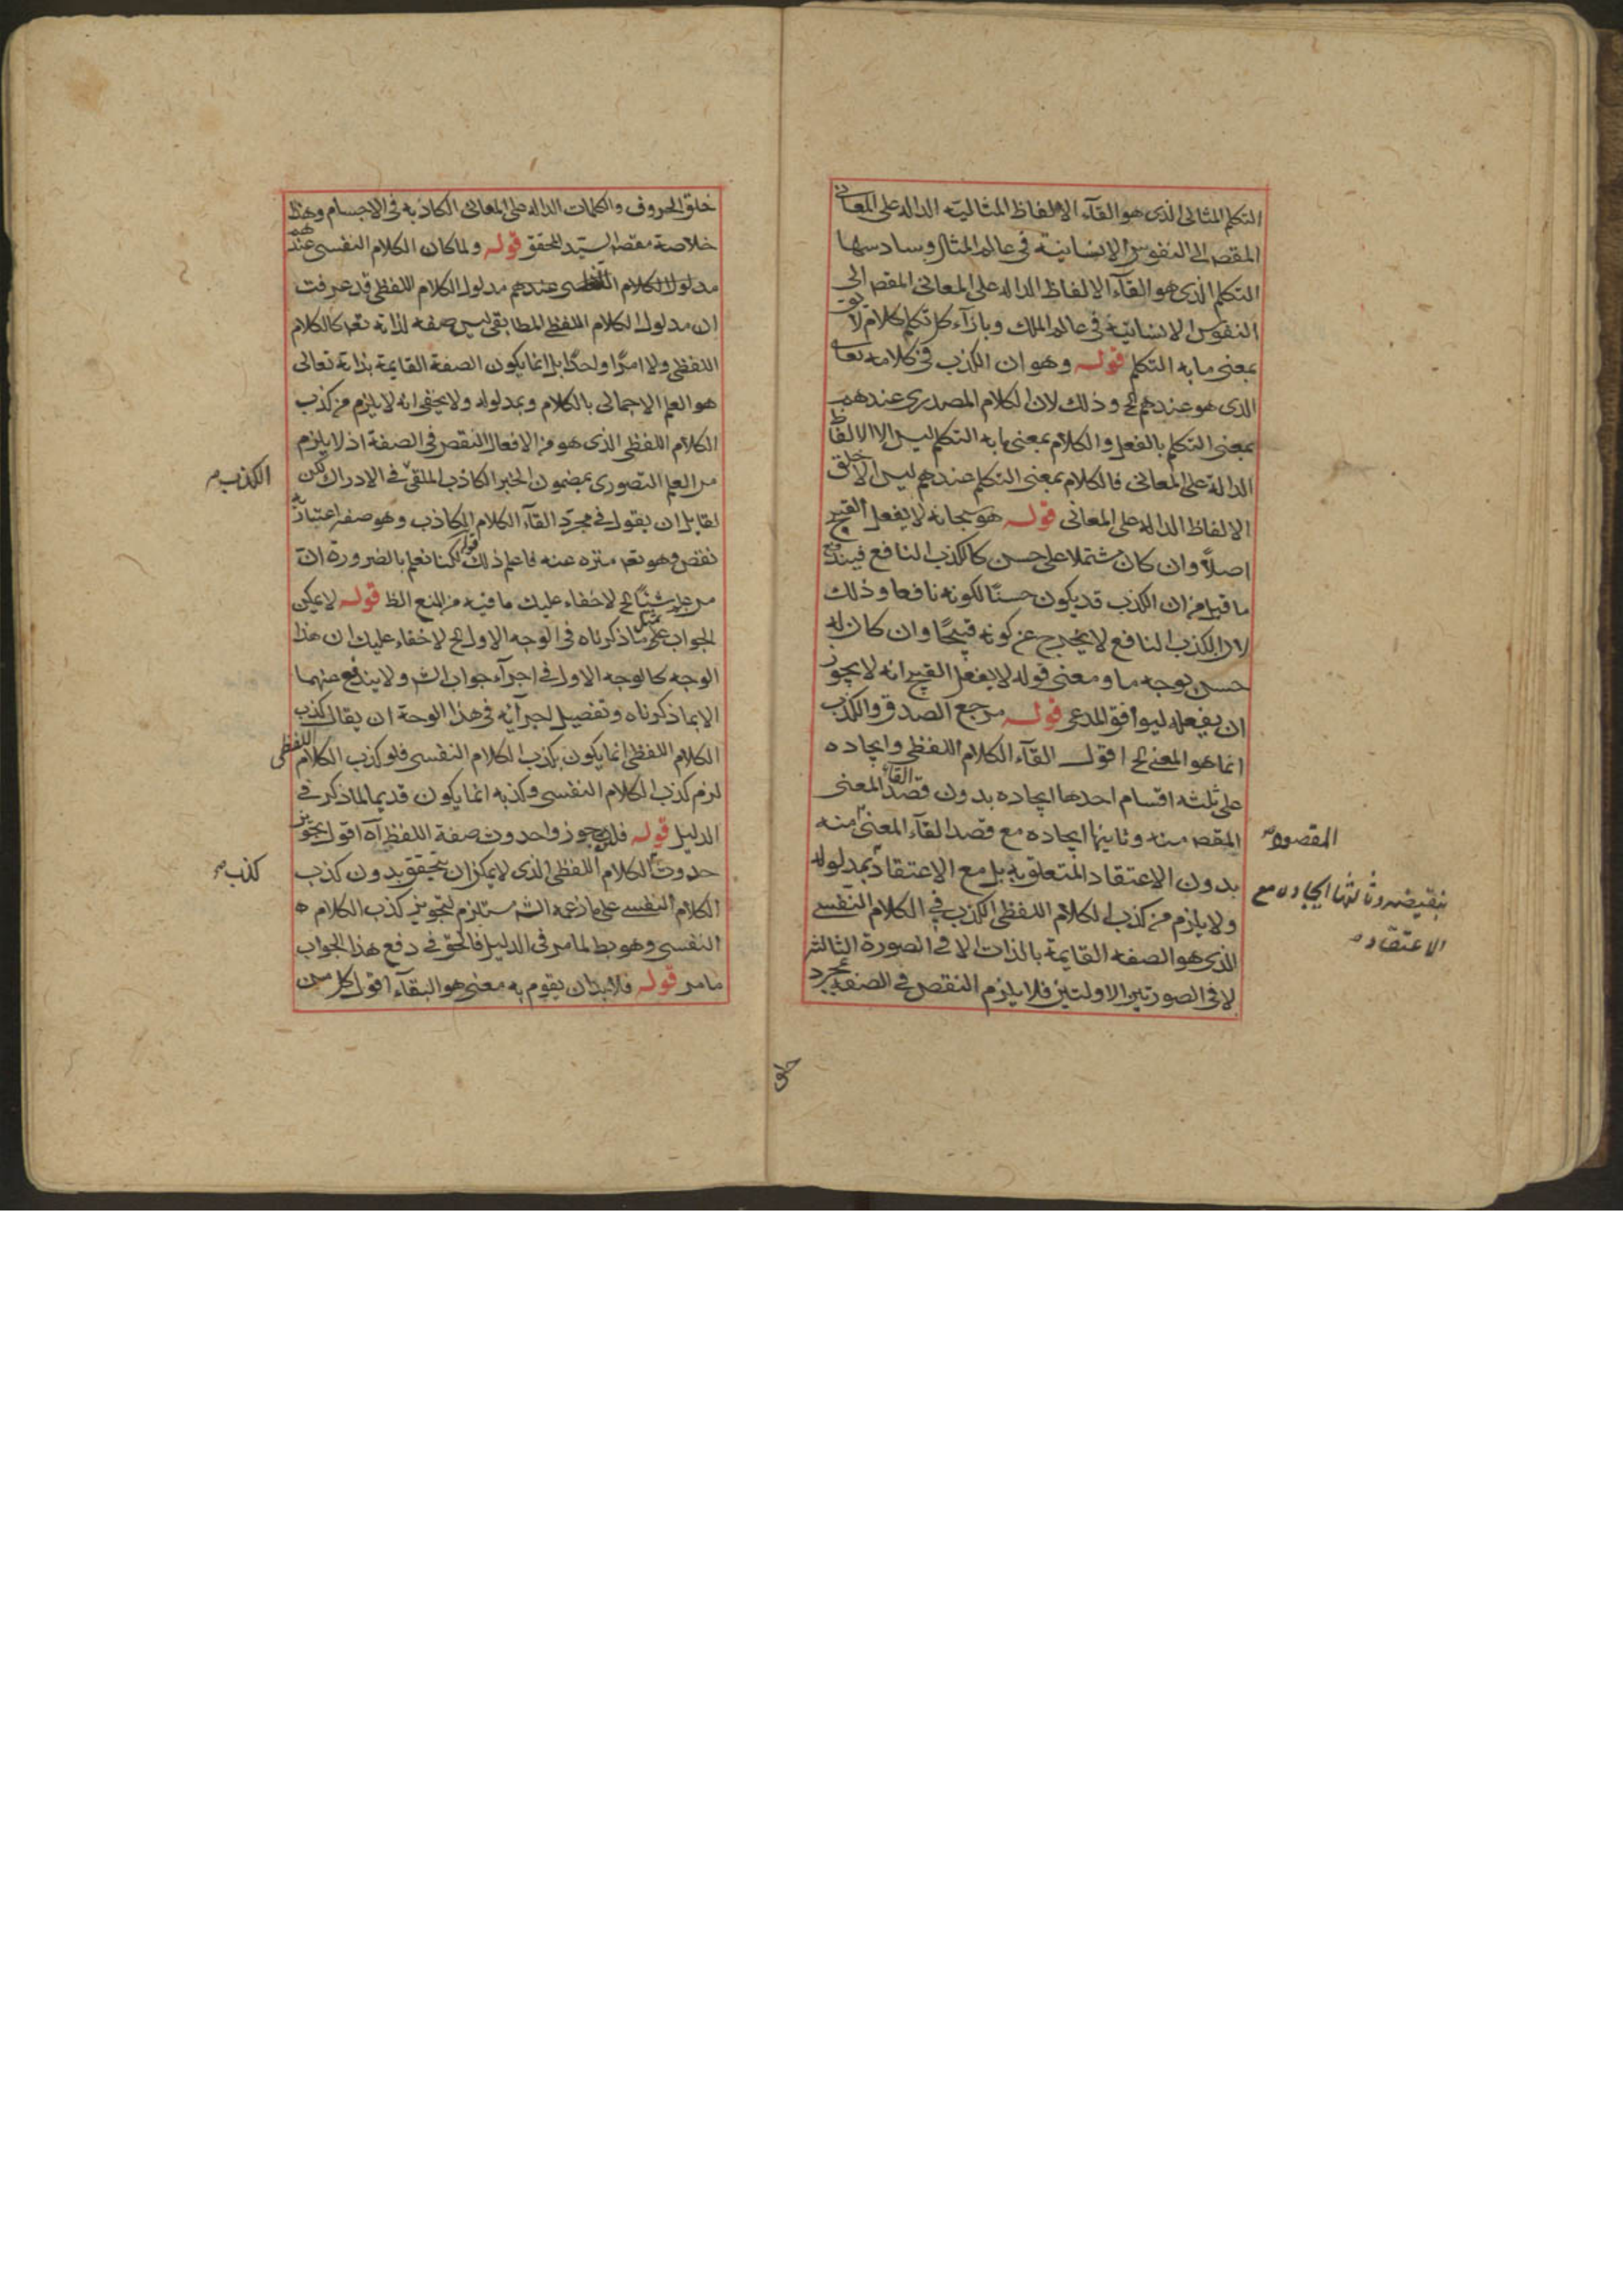 التكلم المثالى الذى هو القآء الالفاظ المثاليّة الدالة على المعانى
المقصـ الى النفوس الانسانية فى عالم المثال وسادسها
التكلم الذى هو القآء الالفاظ الداله على المعانى المقصـ الى
النفوس الانسانيّة فى عالم الملك وبازآء كل تكلم كلام لايق
بمعنى ما به التكلم قوله وهو ان الكذب فى كلامه تعالى
الذى هو عندهم الخ وذلك لان الكلام المصدرى عندهم
بمعنى التكلم بالفعل والكلام بمعنى ما به التكلم ليس الا الالفاظ
الدالة على المعانى فالكلام بمعنى التكلم عندهم ليس الا خلق
الالفاظ الداله على المعانى قوله هو سبحانه لا يفعل القبيح
اصلاً وان كان مشتملا على حسن كالكذب النافع فيندفع
ما قيل من ان الكذب قد يكون حسنًا لكونه نافعا وذلك
لان الكذب النافع لا يخرج عن كونه قبيحًا وان كان له
حسن بوجه ما ومعنى قوله لا يفعل القبيح انه لا يجوز
ان يفعله ليوافق المدعى قوله مرجع الصدق والكذب
انما هو المعنى الخ اقول القآء الكلام اللفظى وايجاده
على ثلثه اقسام احدها ايجاده بدون قصد القاء المعنى
المقصـ منه وثانيها ايجاده مع قصد القآء المعنى منه
المقصود
بدون الاعتقاد المتعلق به بل مع الاعتقاد بمدلوله
بنقيضه وثالثها ايجاده مع
الاعتقاد
ولا يلزم من كذب الكلام اللفظى الكذب فى الكلام النفسى
الذى هو الصفه القايمة بالذات الا فى الصورة الثالثه
لا فى الصورتين الاولتين فلا يلزم النقص فى الصفه بمجرد
خلق
خلق الحروف والكلمات الداله على المعانى الكاذبه فى الاجسام وهذا
خلاصة مقصـ السيّد المحقق قوله ولما كان الكلام النفسى عندهم
مدلول الكلام عندهم مدلول الكلام اللفظى قد عرفت
ان مدلول الكلام اللفظى المطابقى ليس صفه لذاته تعـ كالكلام
اللفظى ولا امرًا واحدًا بل انما يكون الصفة القايمة بذاته تعالى
هو العلم الاجمالى بالكلام وبمدلوله ولا يخفى انه لا يلزم من كذب
الكلام اللفظى الذى هو من الافعال النقص فى الصفة اذ لا يلزم
من العلم التصورى بمضمون الخبر الكاذب الملقى فى الادراك لكن
الكذب
لقايل ان يقول فى مجرّد القآء الكلام الكاذب وهو صفه اعتباريّة
نقص وهو تعـ منزه عنه فاعلم ذلك قوله لكنا نعلم بالضرورة انّ
من علم شيئًا الخ لا خفاء عليك ما فيه من المنع الظ قوله لا يمكن
الجواب بمثل ما ذكرناه فى الوجه الاول الخ لا خفاء عليك ان هذا
الوجه كالوجه الاول فى اجرآء جواب الشـ ولا يندفع عنهما
الا بما ذكرناه وتفصيل اجرآئه فى هذا الوجه ان يقال كذب
الكلام اللفظى انما يكون بكذب الكلام النفسى فلو كذب الكلام اللفظى
لزم كذب الكلام النفسى وكذبه انما يكون قديما لما ذكر فى
الدليل قوله حدوث صفة اللفظ آه اقول تجويز
حدوث الكلام اللفظى الذى لا يمكن ان يتحقق بدون كذب
كذب
الكلام النفسى على ما زعمه الشـ مستلزم لتجويز كذب الكلام
النفسى وهو بط لما مر فى الدليل فالحق فى دفع هذا الجواب
ما مر قوله فلا بد ان يقوم به معنى هو البقآء اقول كل من